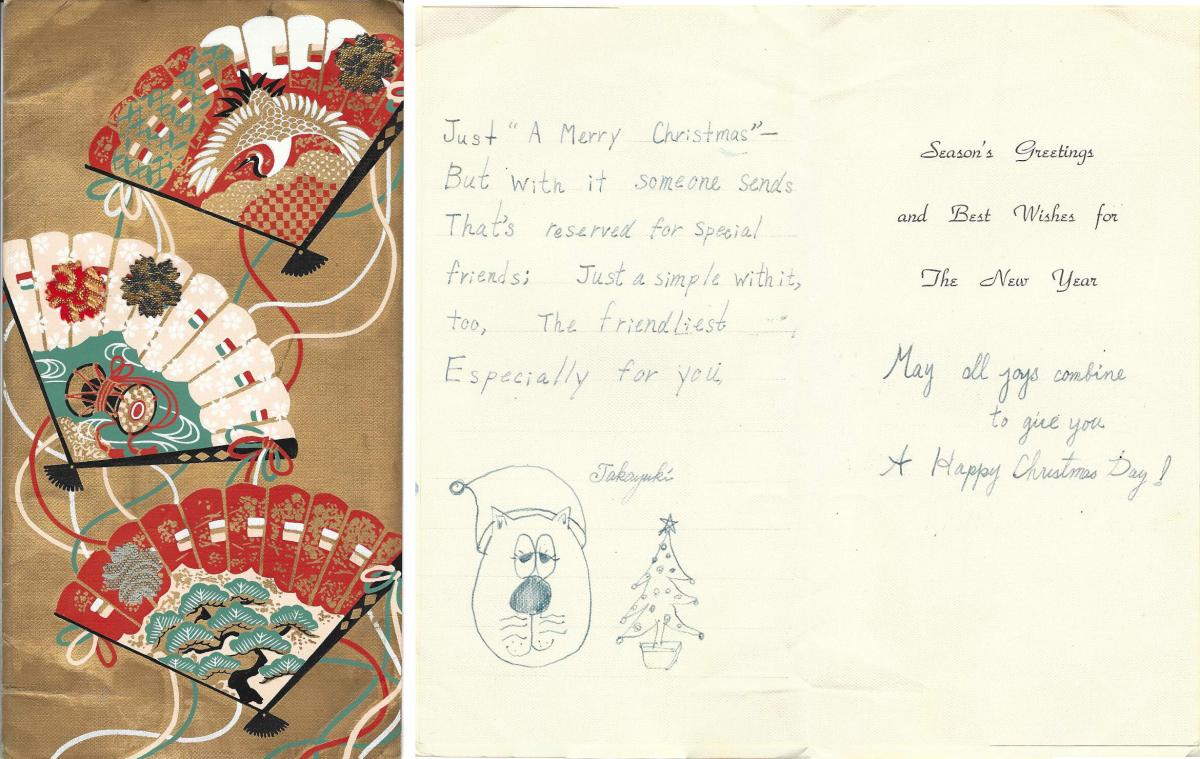 Just "A Merry Christmas"—
But with it someone sends
That's reserved for special
friends; Just a simple with it,
too, The friendliest
Especially for you,
Takayuki
Season's Greetings
and Best Wishes for
The New Year
May all joys combine
to give you
A Happy Christmas Day!